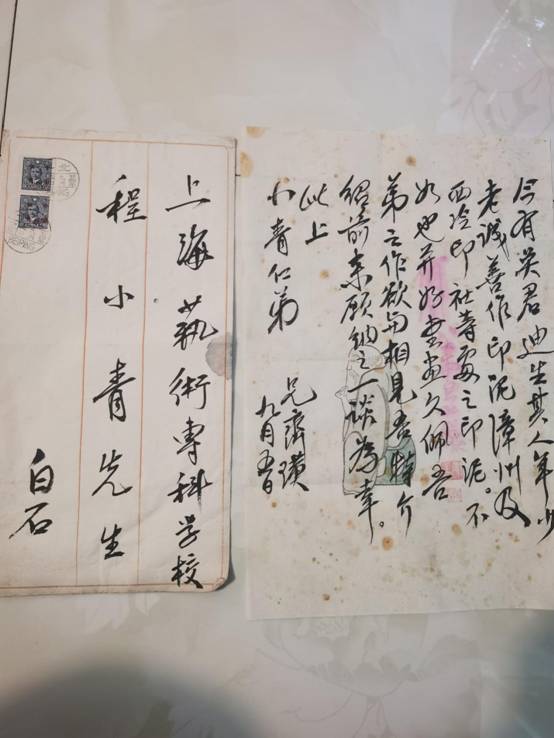 今有吳君迪生其人年少
老誠善作印泥漳州及
西泠印社之印泥。不
如也并好畫久佩吾
弟之作欲與相見吾特介
紹前來願納之一談為幸。
此上
小青仁弟
兄齊璜
九月五日
上海藝術專科學校
程小青先生
白石